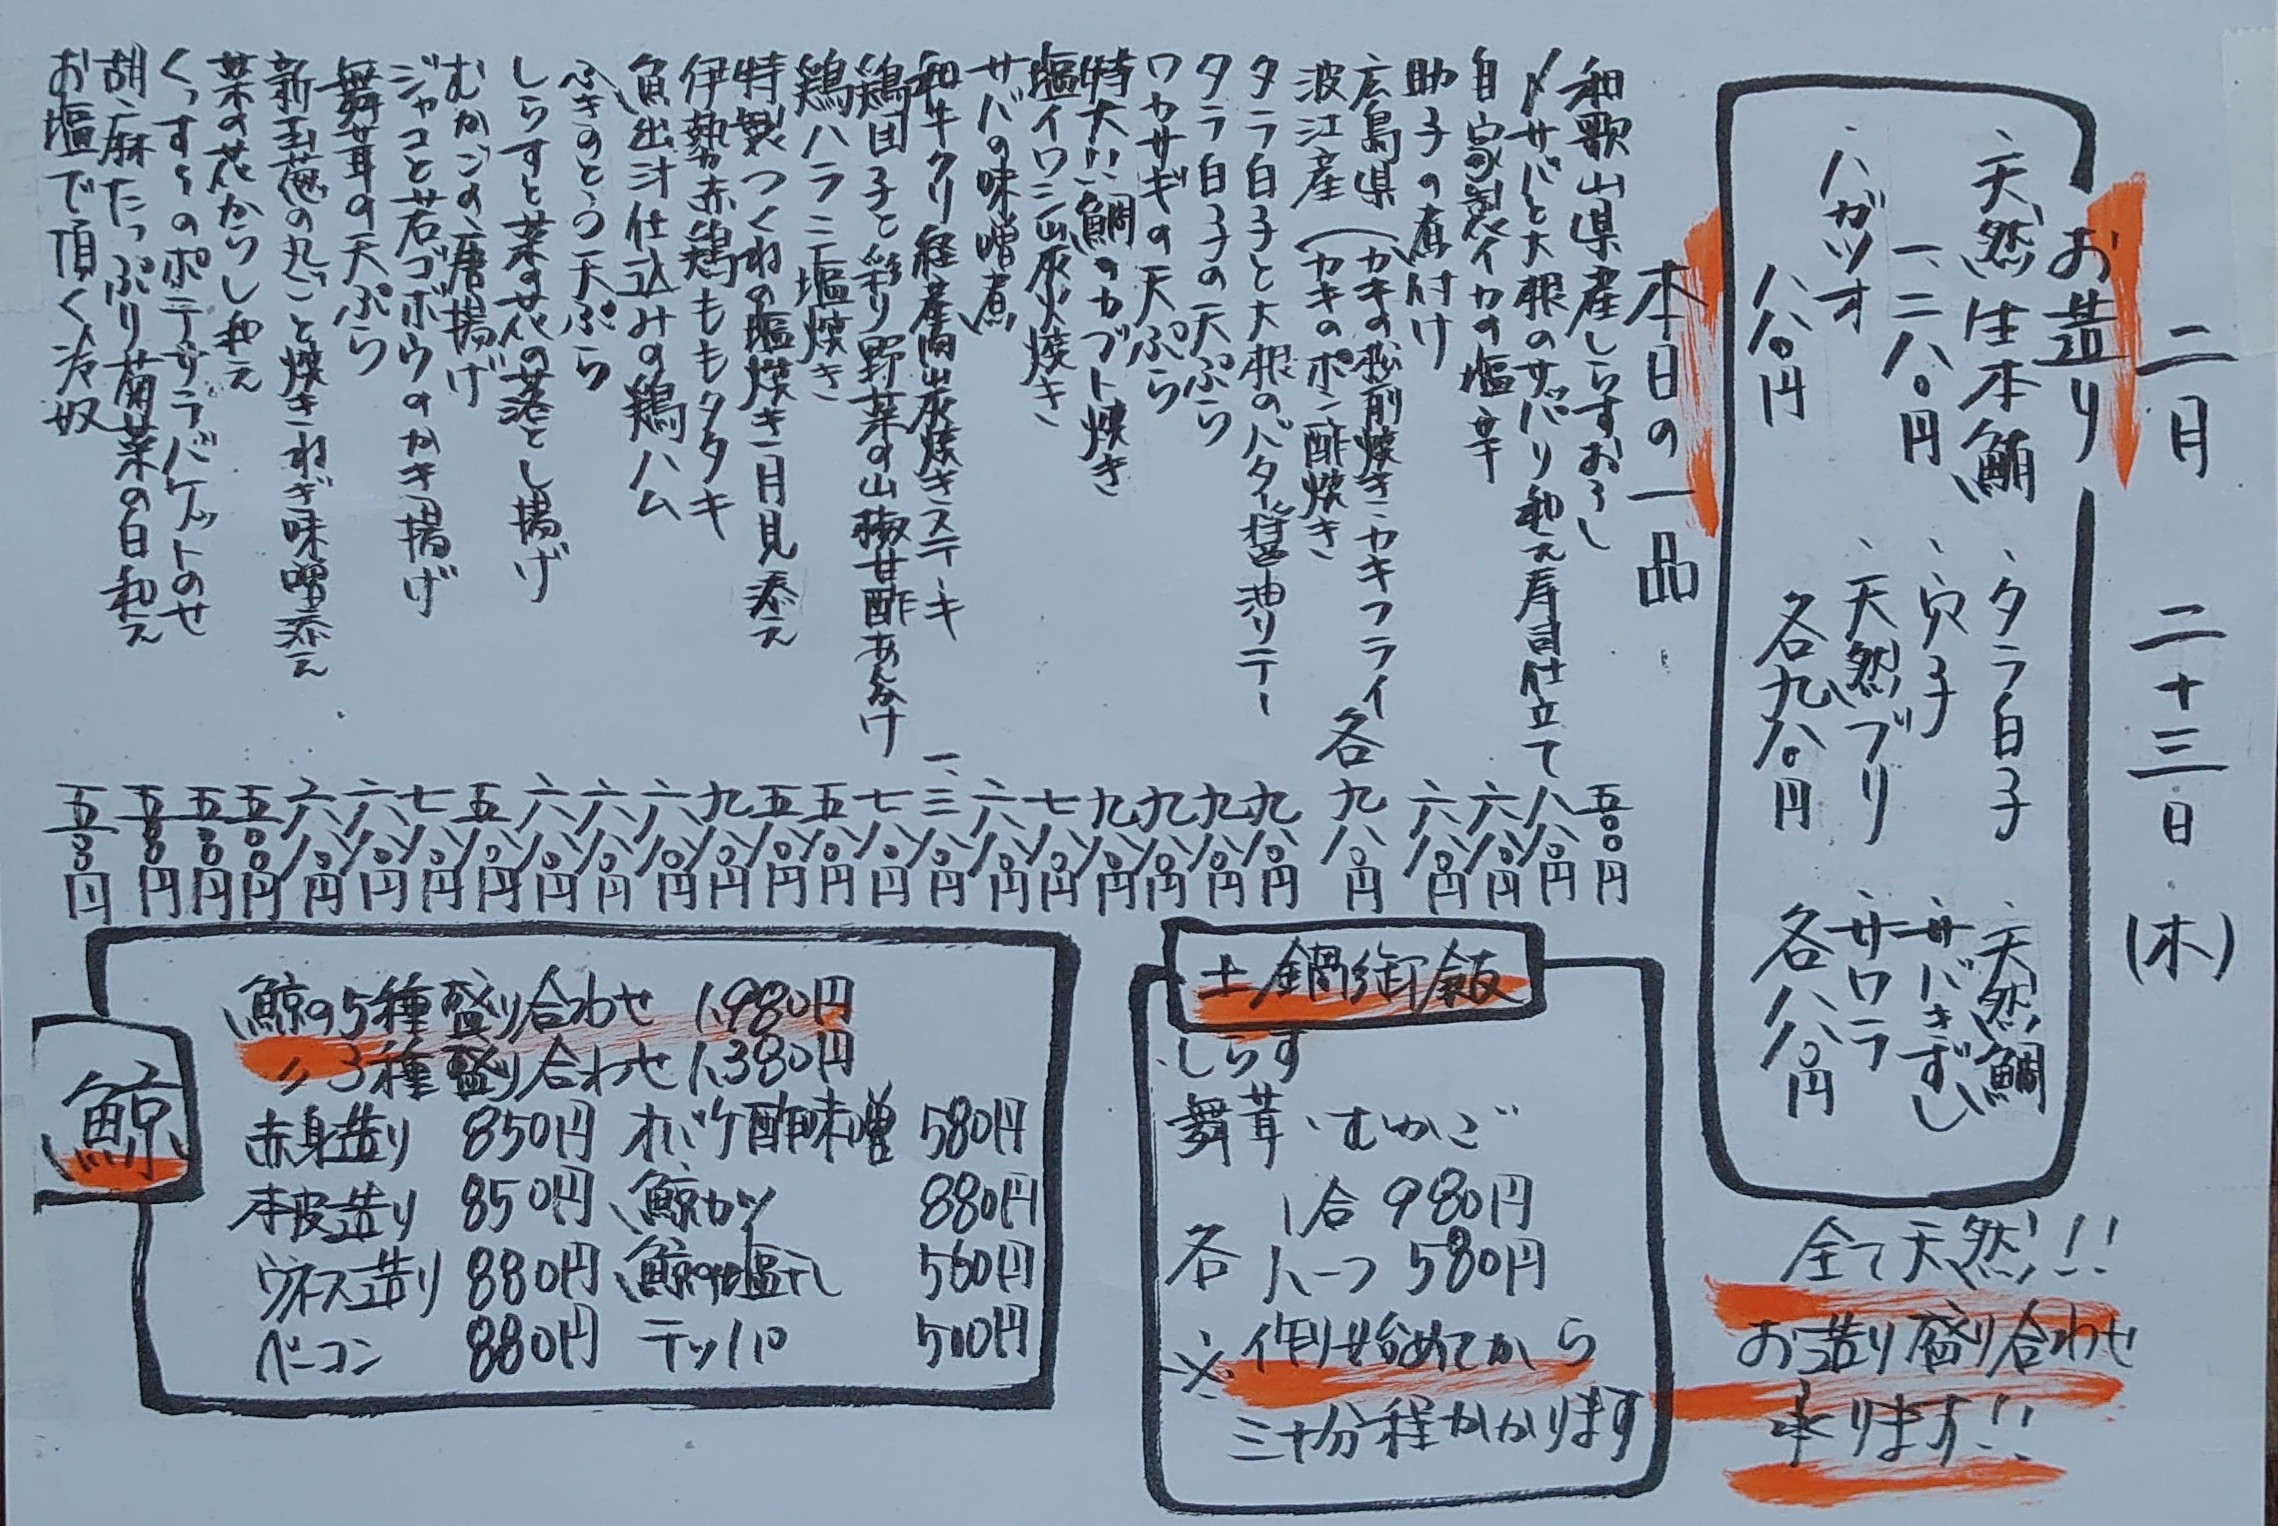 二月 二十三日(木)
お造り
・天然生本鮪
一、二八〇円
・ハガツオ
八八〇円
・タラ白子
・穴子
・天然ブリ
各九八〇円
・天然鯛
・サバきずし
・サワラ
各八八〇円
全て天然!!
お造り盛り合わせ
承ります!!
本日の一品
和歌山県産しらすおろし 五〇〇円
〆サバと大根のサッパリ和え寿司仕立て 八八〇円
自家製イカの塩辛 六八〇円
助子の煮付け 六八〇円
広島県 カキの松前焼き・カキフライ
波江産 カキのポン酢焼き 各九八〇円
タラ白子と大根のバター醤油ソテー 九八〇円
タラ白子の天ぷら 九八〇円
ワカサギの天ぷら 九八〇円
特大!!鯛のカブト焼き 九八〇円
塩イワシ炭火焼き 七八〇円
サバの味噌煮 六八〇円
和牛クリ経産肉炭焼きステーキ 一、三八〇円
鶏団子と彩り野菜の山椒甘酢あんかけ 七八〇円
鶏ハラミ塩焼き 五八〇円
特製つくねの塩焼き 月見添え 五八〇円
伊勢赤鶏ももタタキ 九八〇円
魚出汁仕込みの鶏ハム 六八〇円
ふきのとう天ぷら 六八〇円
しらすと菜の花の落とし揚げ 六八〇円
むかごの唐揚げ 五八〇円
ジャコと若ゴボウのかき揚げ 七八〇円
舞茸の天ぷら 六八〇円
新玉葱の丸ごと焼きねぎ味噌添え 六八〇円
菜の花からし和え 五〇〇円
くったりのポテサラバケットのせ 五〇〇円
胡麻たっぷり菊菜の白和え 五〇〇円
お塩で頂く冷奴 五〇〇円
土鍋御飯
・しらす
舞茸・むかご
各 1合 980円
人一つ 580円
※作り始めてから
三十分程かかります
鯨
鯨の5種盛り合わせ 1,980円
〃3種盛り合わせ 1,380円
赤身造り 850円 オバケ酢味噌 580円
本皮造り 850円 鯨カツ 880円
ウネス造り 880円 鯨の塩干し 560円
ベーコン 880円 テッパ 500円